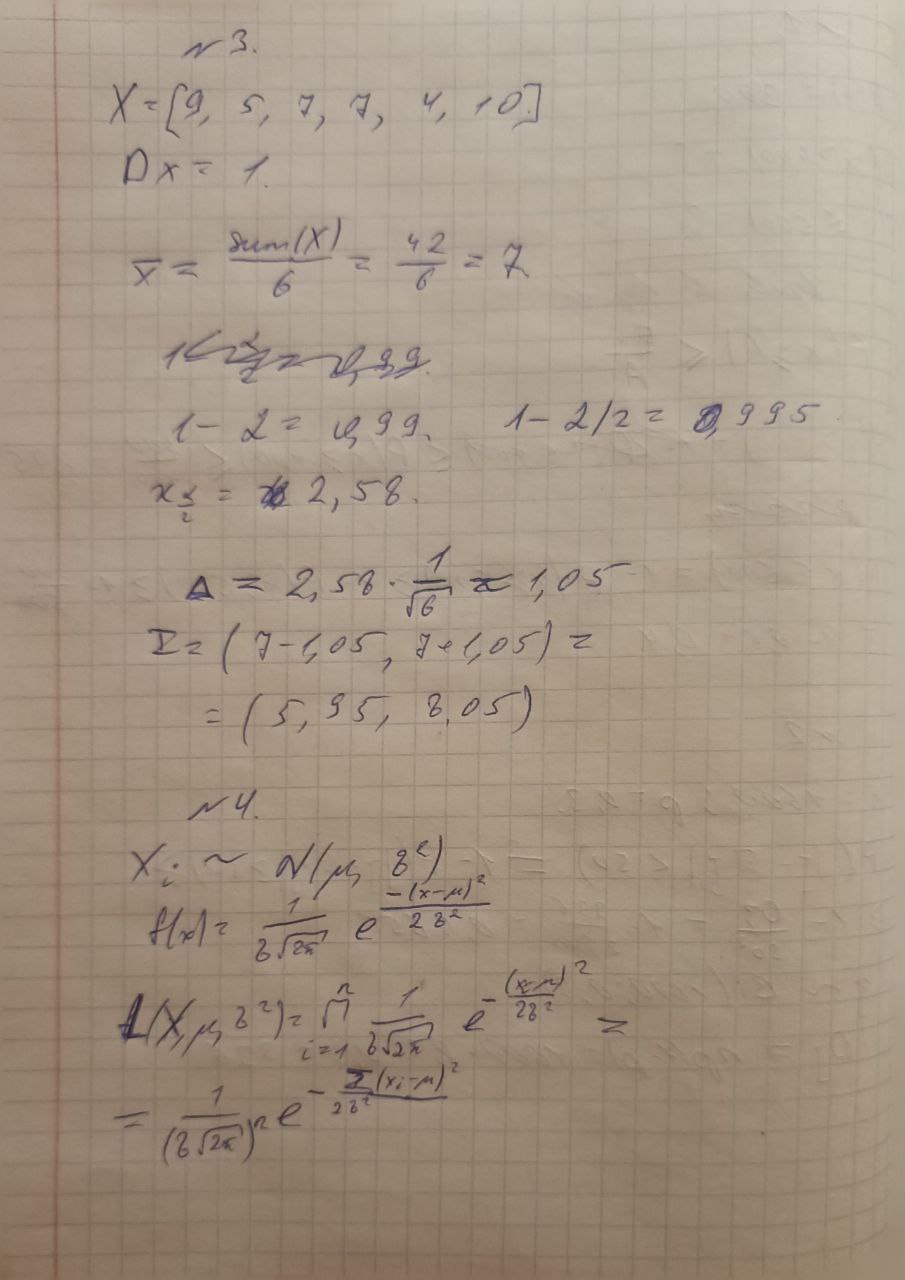 №3.
X = [9, 5, 7, 7, 4, 10]
Dx = 1.
x̅ = sum(X)/6 = 42/6 = 7
1 - α = 0,99. 1 - α/2 = 0,995.
x_α/2 = 2,58.
Δ = 2,58 · 1/√6 ≈ 1,05
I = (7-1,05, 7+1,05) =
= (5,95, 8,05)
№4.
X_i ~ N(μ, σ²)
f(x) = 1/(σ√2π) e^(-(x-μ)²/2σ²)
L(X, μ, σ²) = ∏_{i=1}^{n} 1/(σ√2π) e^(-(x-μ)²/2σ²) =
= 1/(σ√2π)^n e^(-Σ(x_i-μ)²/2σ²)